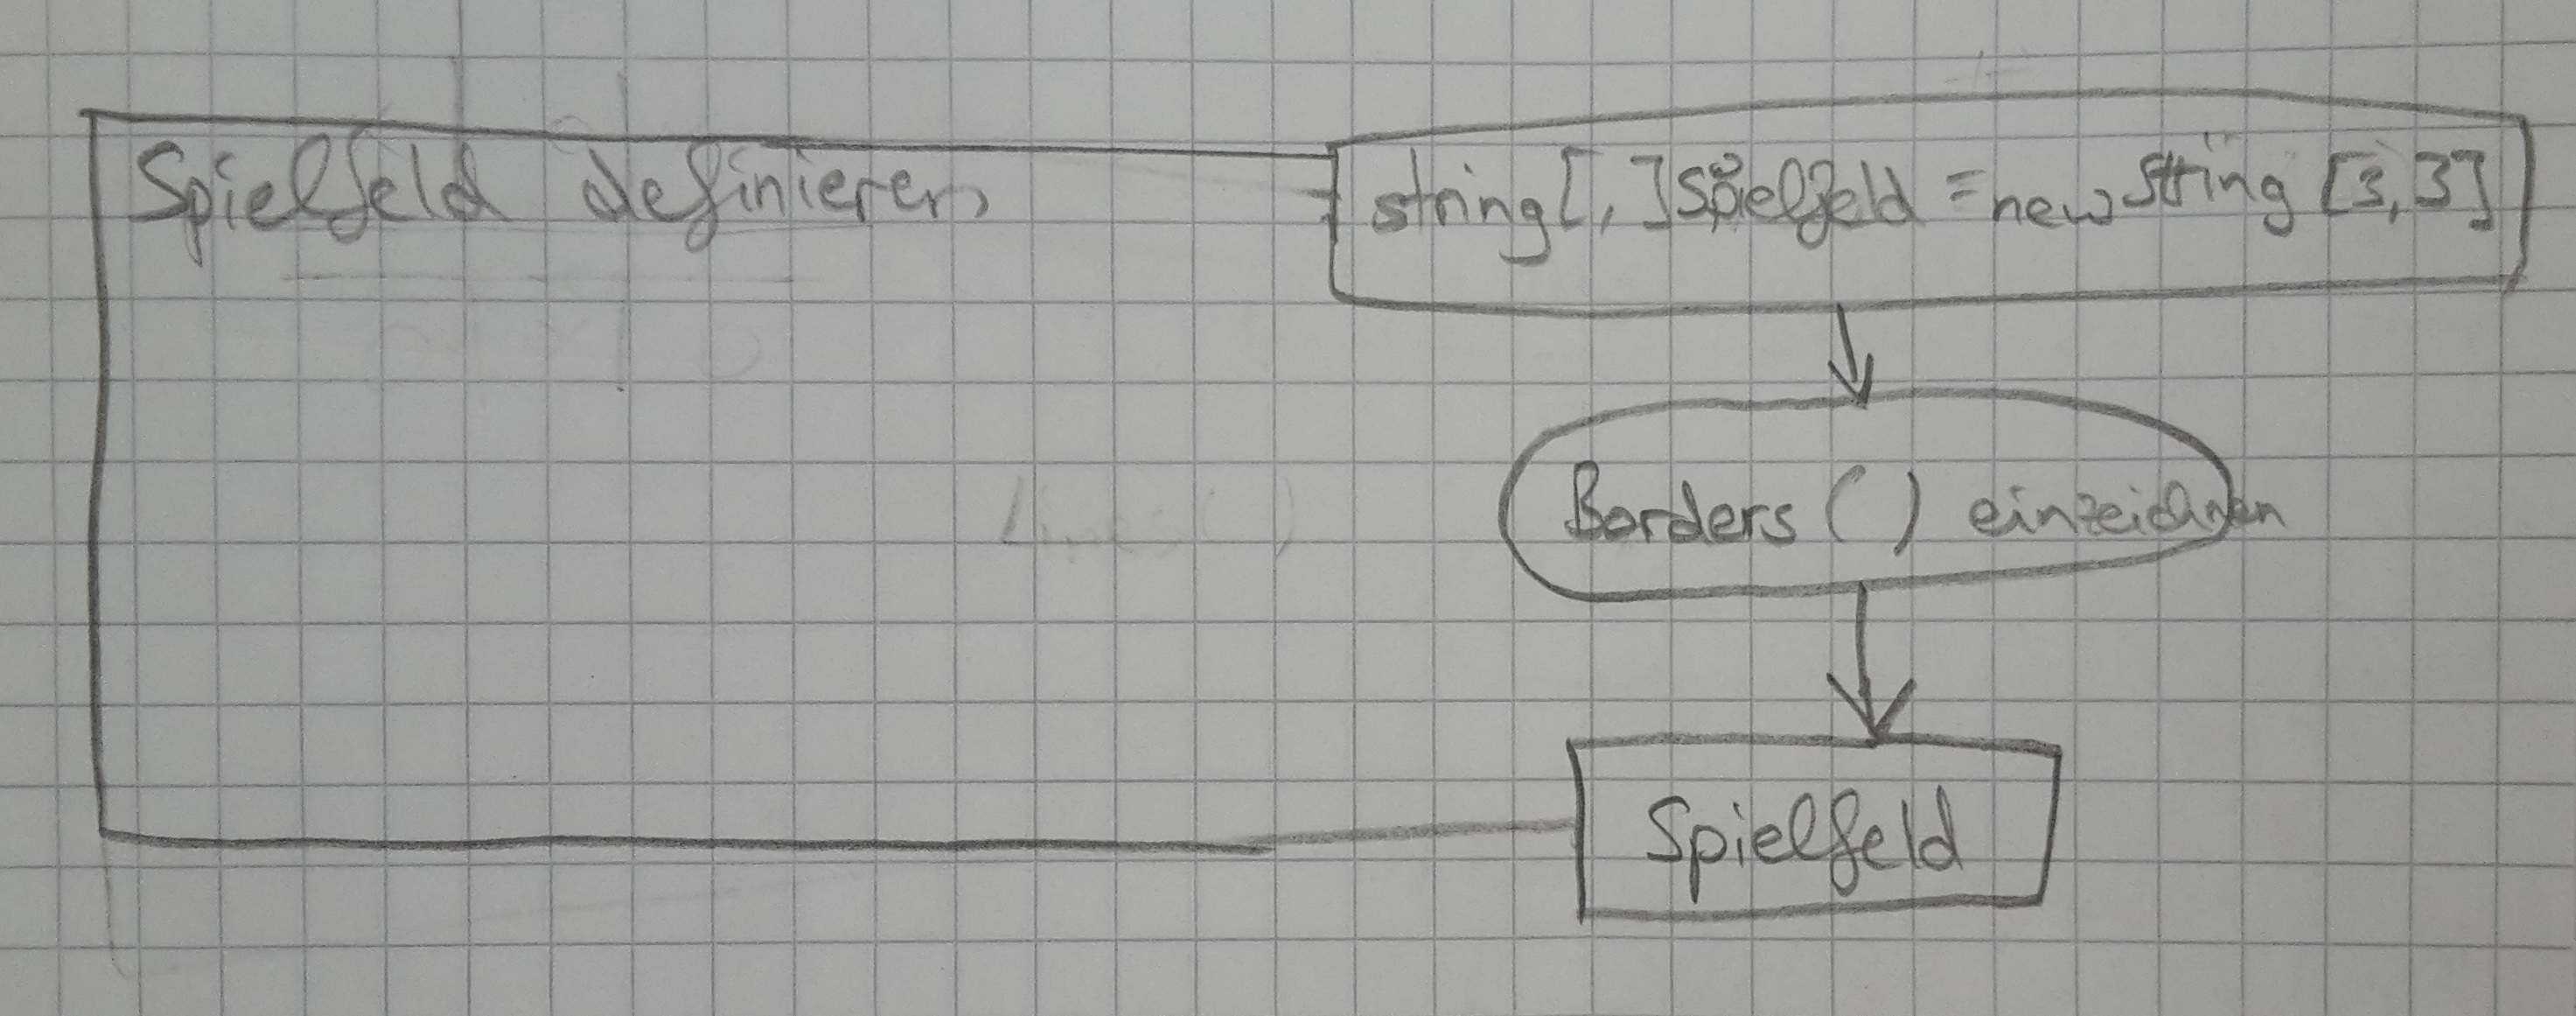 Spielfeld definieren
string[,]Spielfeld = new string [3,3]
Borders () einzeichnen
Spielfeld